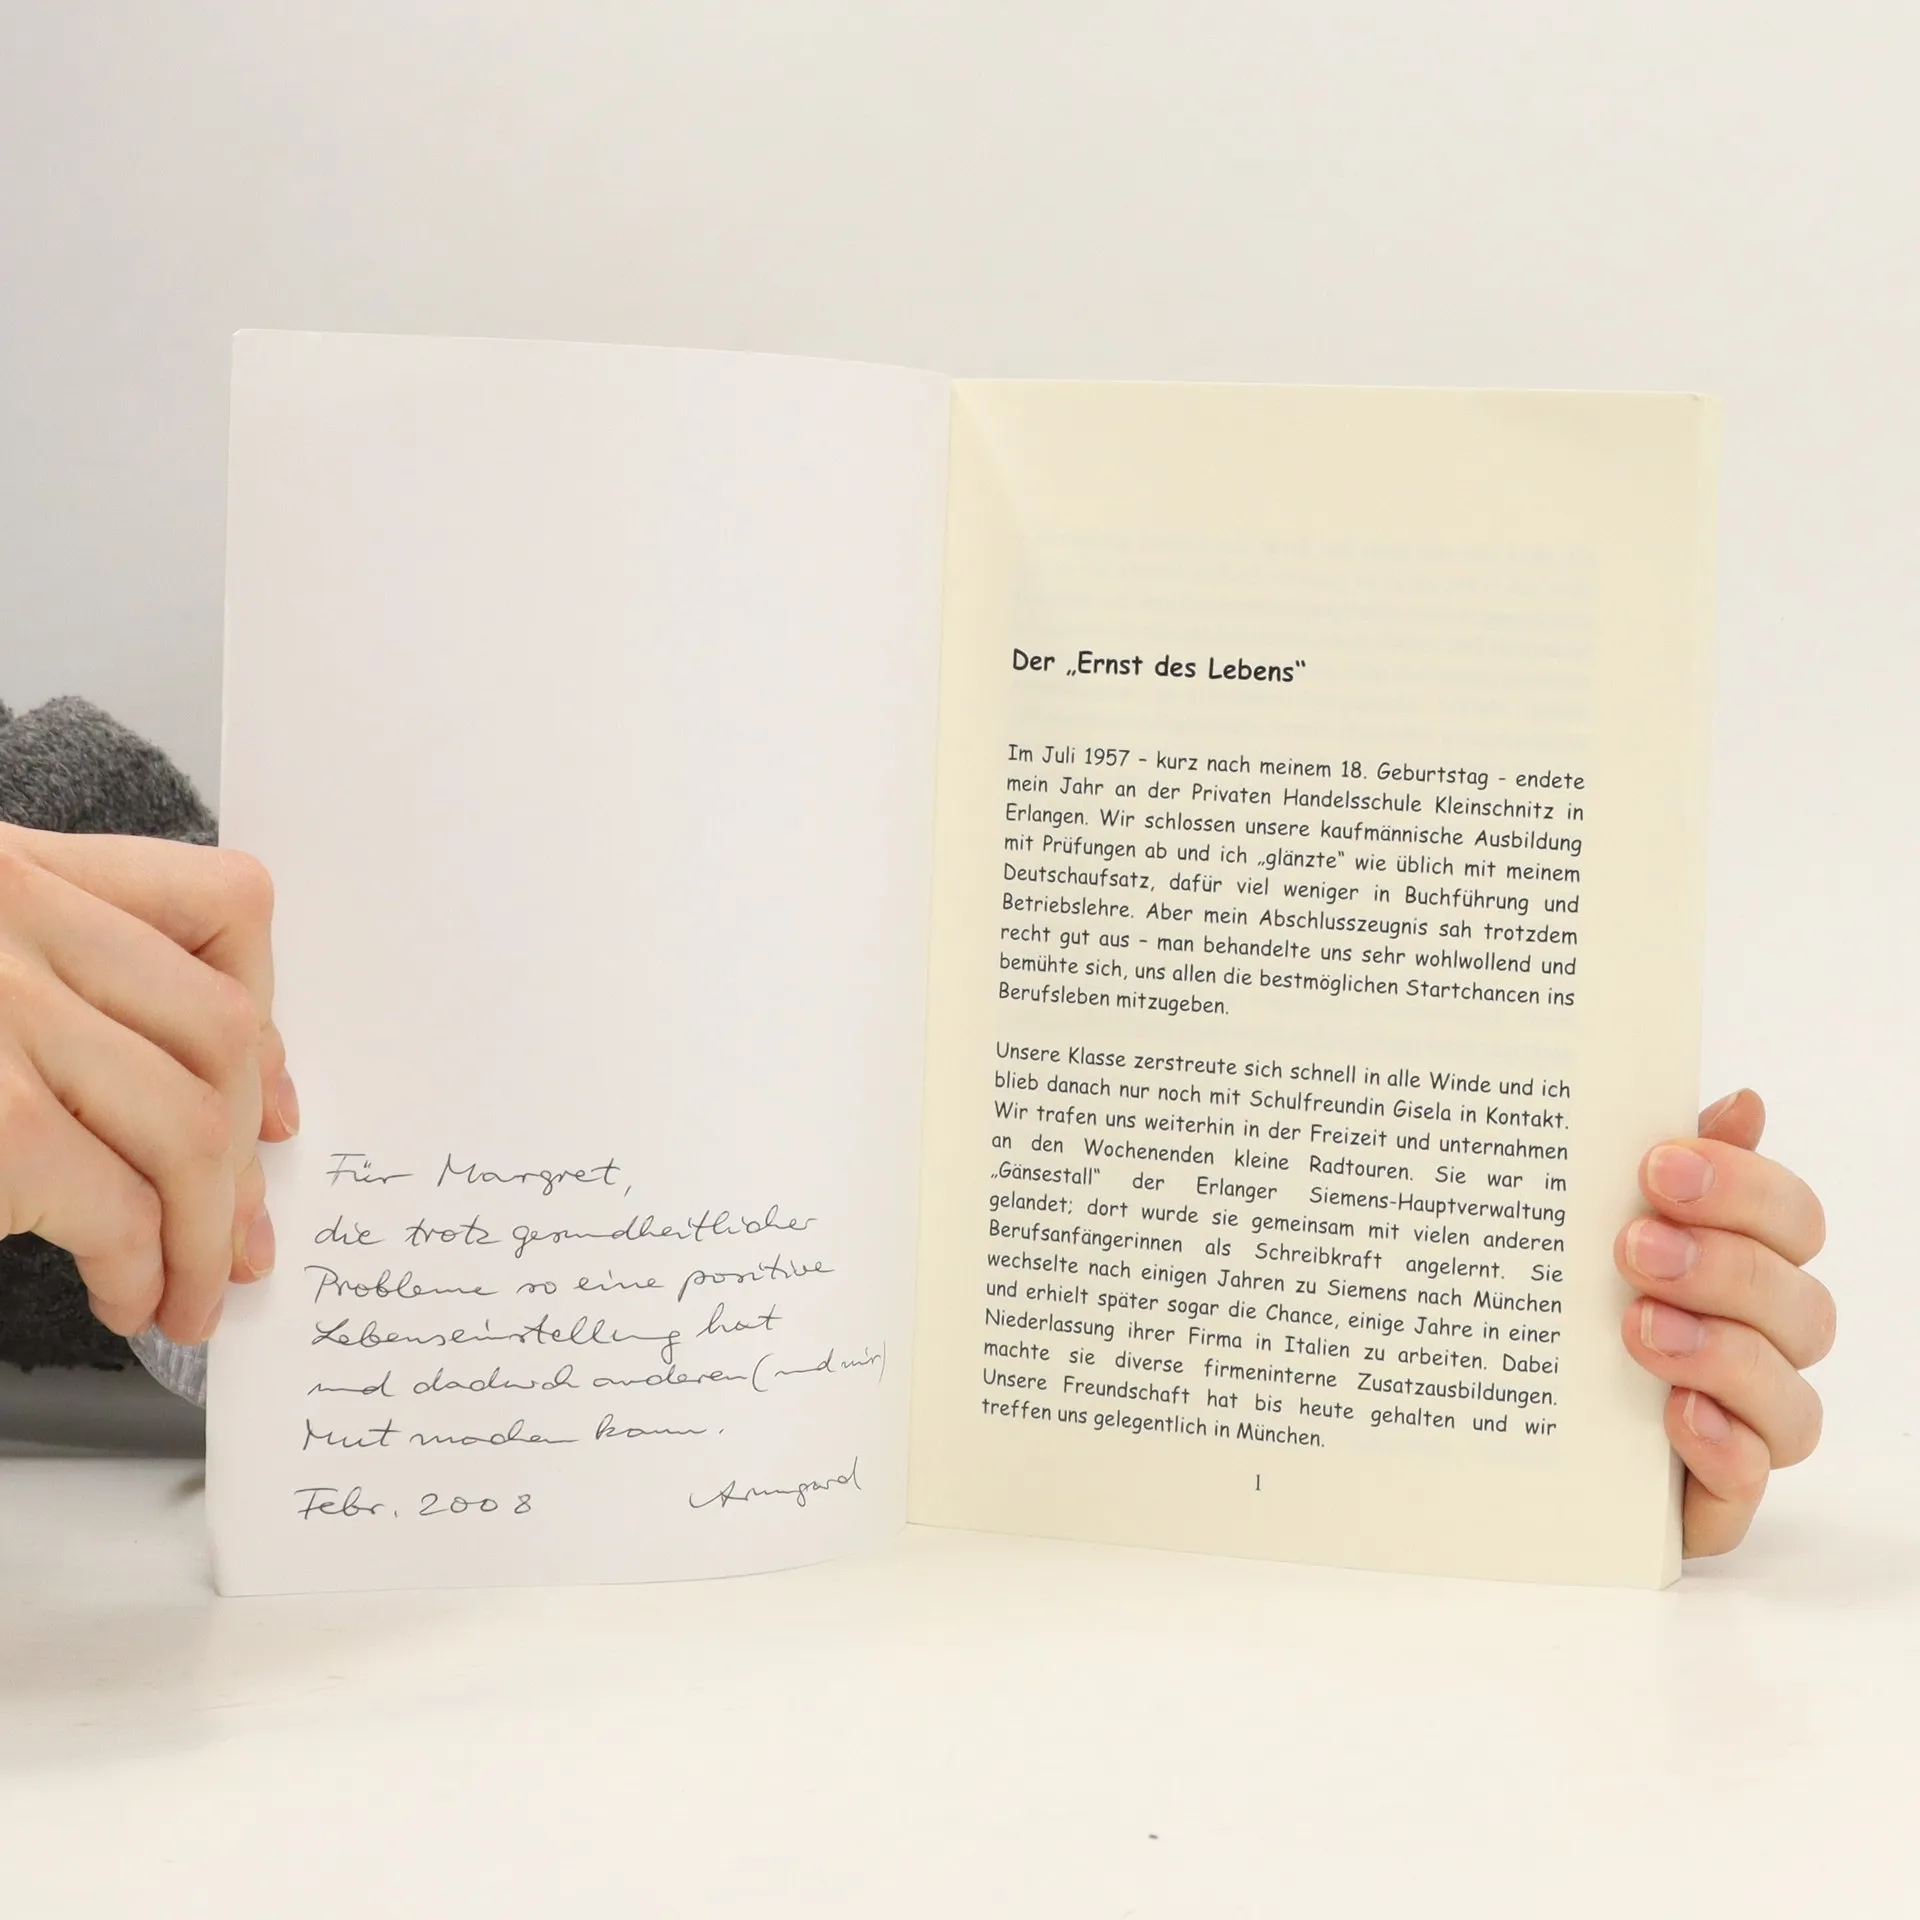 Für Margret,
die trotz gesundheitlicher
Probleme so eine positive
Lebenseinstellung hat
und dadurch anderen (und mir)
Mut machen kann.
Febr. 2008 Armgard
Der „Ernst des Lebens“
Im Juli 1957 - kurz nach meinem 18. Geburtstag - endete
mein Jahr an der Privaten Handelsschule Kleinschnitz in
Erlangen. Wir schlossen unsere kaufmännische Ausbildung
mit Prüfungen ab und ich „glänzte“ wie üblich mit meinem
Deutschaufsatz, dafür viel weniger in Buchführung und
Betriebslehre. Aber mein Abschlusszeugnis sah trotzdem
recht gut aus – man behandelte uns sehr wohlwollend und
bemühte sich, uns allen die bestmöglichen Startchancen ins
Berufsleben mitzugeben.
Unsere Klasse zerstreute sich schnell in alle Winde und ich
blieb danach nur noch mit Schulfreundin Gisela in Kontakt.
Wir trafen uns weiterhin in der Freizeit und unternahmen
an den Wochenenden kleine Radtouren. Sie war im
„Gänsestall“ der Erlanger Siemens-Hauptverwaltung
gelandet; dort wurde sie gemeinsam mit vielen anderen
Berufsanfängerinnen als Schreibkraft angelernt. Sie
wechselte nach einigen Jahren zu Siemens nach München
und erhielt später sogar die Chance, einige Jahre in einer
Niederlassung ihrer Firma in Italien zu arbeiten. Dabei
machte sie diverse firmeninterne Zusatzausbildungen.
Unsere Freundschaft hat bis heute gehalten und wir
treffen uns gelegentlich in München.
1